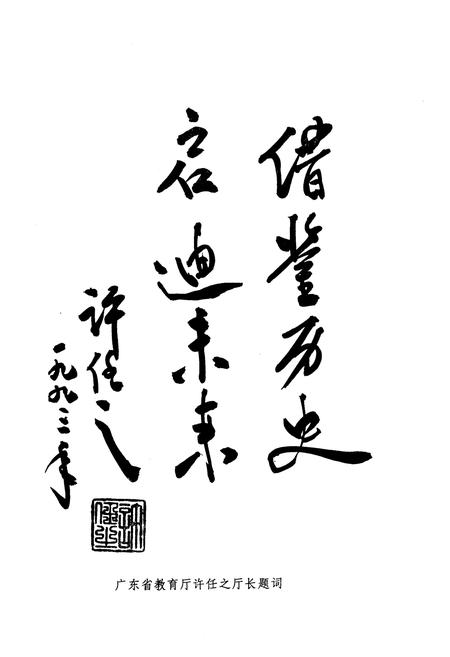 借鉴历史
启迪未来
许任之
一九九三年
許任之
广东省教育厅许任之厅长题词